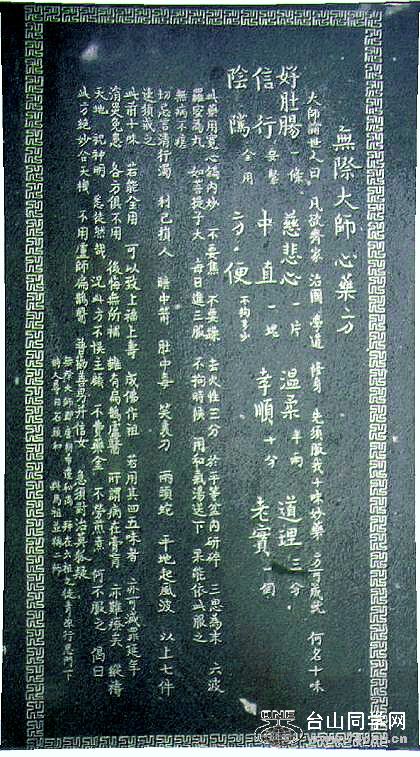 無際大師心藥方
大師諭世人曰 凡欲齊家 治國 學道 修身 先須服我十味妙藥 方可成就 何名十味
好肚腸一條 慈悲心一片 溫柔半兩 道理三分
信行要緊 中直一塊 孝順十分 老實一個
陰隲全用 方便不拘多少
此藥用寬心鍋內炒 不要焦 不要躁 去火性三分 於平等盆內研碎 三思為末 六波
羅密為丸 如菩提子大 每日進三服 不拘時候 用和氣湯送下 果能依此服之
無病不瘥
切忌言清行濁 利己損人 暗中箭 肚中毒 笑裏刀 兩頭蛇 平地起風波 以上七件
速須戒之
此前十味 若能全用 可以致上福上壽 成佛作祖 若用其四五味者 亦可滅罪延年
消災免患 各方俱不用 後悔無所補 雖有扁鵲盧醫 所謂病在膏肓 亦難療矣 縱禱
天地 祝神明 悉徒然哉 況此方不誤主顧 不費藥金 不勞煎煮 何不服之 偈曰
此方絕妙合天機 不用盧師扁鵲醫 普勸善男并信女 急須對治莫狐疑
無際大師即唐朝青原和尚
台山同学网